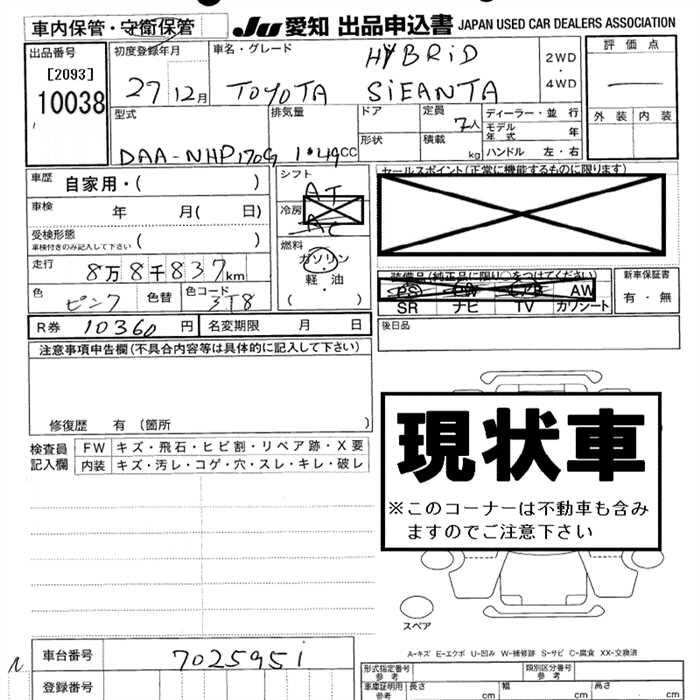 車内保管・守衛保管
JU 愛知 出品申込書 JAPAN USED CAR DEALERS ASSOCIATION
出品番号
[2093]
10038
初度登録年月
27 12月
車名・グレード
HYBRiD
TOYOTA SiEANTA
2WD
・
4WD
評価点
外装 内装
型式
DAA-NHP170G
排気量
1.49cc
ドア
形状
定員
7人
積載
kg
ディーラー・並行
モデル年式 年
ハンドル 左・右
車歴 自家用・( )
車検 年 月( 日)
受検形態
車検付きのみ記入して下さい ( )
走行 8万8千837km
色 ピンク 色替 色コード 3T8
シフト
AT
冷房
AC
燃料
ガソリン
・
軽油
( )
セールスポイント(正常に機能するものに限ります)
装備品(純正品に限り○をつけてください)
PS PW エアB AW
SR ナビ TV カワシート
新車保証書
有・無
後日品
R券 10360 円 名変期限 月 日
注意事項申告欄(不具合内容等は具体的に記入して下さい)
修復歴 有(箇所 )
検査員記入欄
FW キズ・飛石・ヒビ割・リペア跡・X要
内装 キズ・汚レ・コゲ・穴・スレ・キレ・破レ
現状車
※このコーナーは不動車も含み
ますのでご注意下さい
スペア
A-キズ E-エクボ U-凹み W-補修跡 S-サビ C-腐食 XX-交換済
車台番号 7025951
登録番号
形式指定番号
参考
類別区分番号
参考
車庫証明用
参考
長さ cm 幅 cm 高さ cm